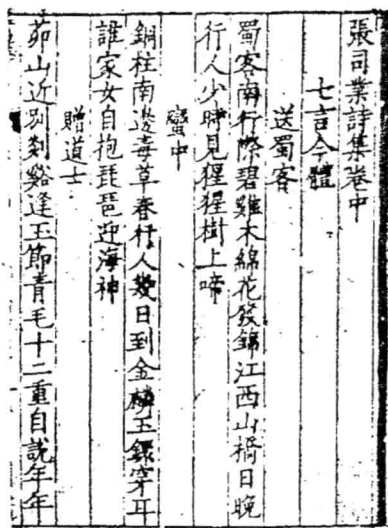 張司業詩集卷中
七言今體
送蜀客
蜀客南行際碧雞木綿花發錦江西山橋日晚
行人少時見猩猩樹上啼
蠻中
銅柱南邊毒草春行人幾日到金麟玉鐶穿耳
誰家女自抱琵琶迎海神
贈道士
茆山近別剡谿逢玉節青毛十二重自說年年